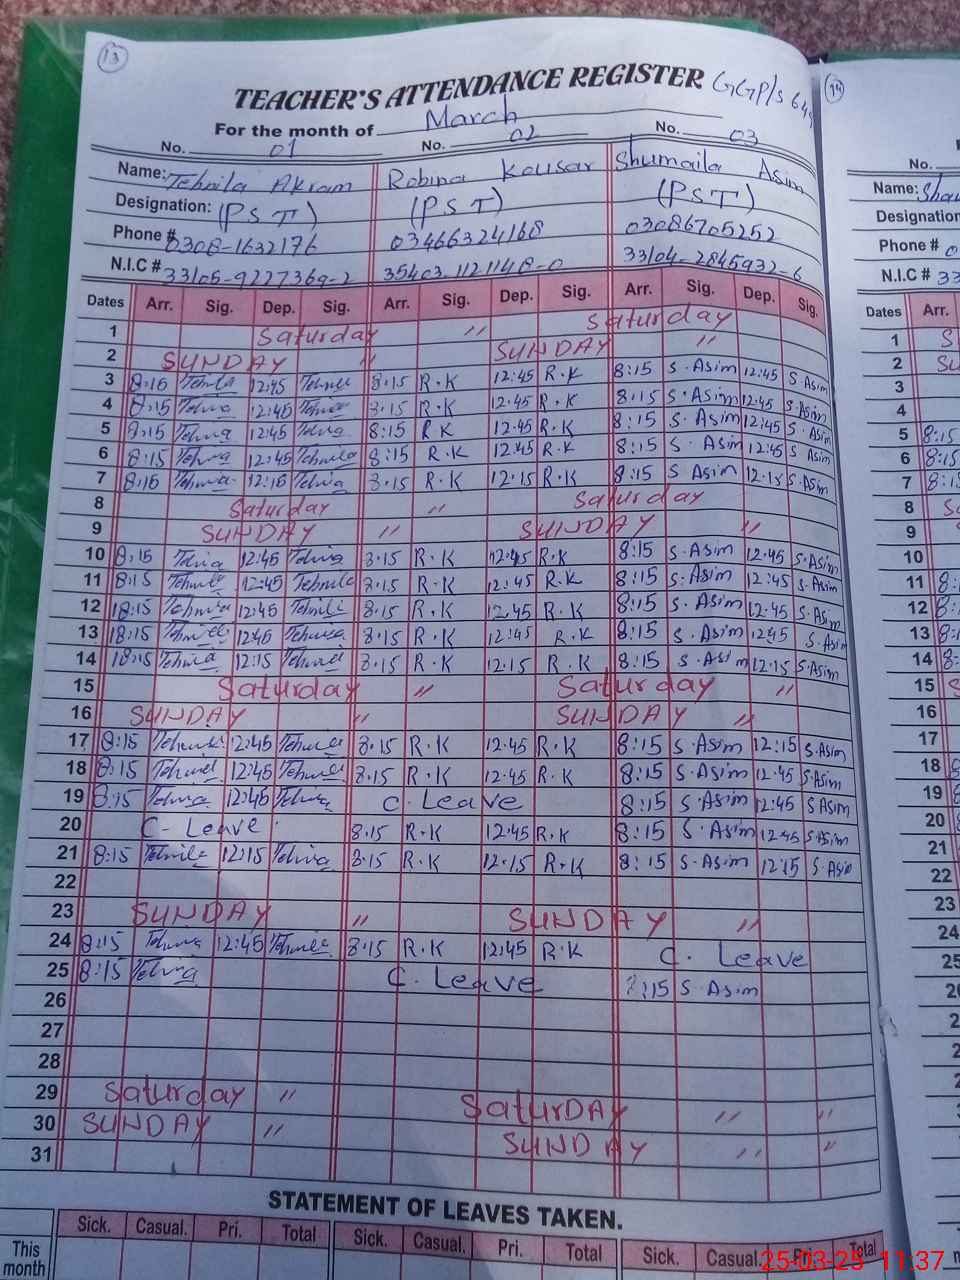 13
TEACHER'S ATTENDANCE REGISTER GGP/S
14
For the month of March
No. 01 No. 02 No. 03
Name: Tehnila Akram Robina Kousar Shumaila Asim
Designation: (PST) (PST) (PST)
Phone # 0308-1632176 03466324168 03086705252
N.I.C # 33105-9227369-2 35403-1121148-0 33104-2845932-6
Dates Arr. Sig. Dep. Sig. Arr. Sig. Dep. Sig. Arr. Sig. Dep. Sig.
1 Saturday " Saturday
2 SUNDAY " SUNDAY "
3 8:15 Tehnila 12:45 Tehnila 8:15 R.K 12:45 R.K 8:15 S.Asim 12:45 S.Asim
4 8:15 Tehnila 12:45 Tehnila 8.15 R.K 12.45 R.K 8:15 S.Asim 12:45 S.Asim
5 8:15 Tehnila 12:45 Tehnila 8:15 R K 12.45 R.K 8:15 S.Asim 12:45 S.Asim
6 8:15 Tehnila 12:45 Tehnila 8:15 R.K 12.45 R.K 8:15 S.Asim 12:45 S.Asim
7 8:15 Tehnila 12:15 Tehnila 8.15 R.K 12.15 R.K 8:15 S Asim 12.15 S.Asim
8 Saturday " Saturday
9 SUNDAY " SUNDAY "
10 8:15 Tehnila 12:45 Tehnila 8.15 R.K 12:45 R.K 8:15 S.Asim 12.45 S.Asim
11 8:15 Tehnila 12:45 Tehnila 8.15 R.K 12:45 R.K 8:15 S.Asim 12:45 S.Asim
12 8:15 Tehnila 12:45 Tehnila 8.15 R.K 12.45 R.K 8:15 S.Asim 12:45 S.Asim
13 8:15 Tehnila 12:45 Tehnila 8.15 R.K 12:45 R.K 8:15 S.Asim 12:45 S.Asim
14 8:15 Tehnila 12:15 Tehnila 8.15 R.K 12.15 R.K 8:15 S.Asim 12:15 S.Asim
15 Saturday " Saturday "
16 SUNDAY " SUNDAY "
17 8:15 Tehnila 12:45 Tehnila 8.15 R.K 12.45 R.K 8:15 S.Asim 12:15 S.Asim
18 8:15 Tehnila 12:45 Tehnila 8.15 R.K 12.45 R.K 8:15 S.Asim 12:45 S.Asim
19 8:15 Tehnila 12:45 Tehnila C. Leave 8:15 S.Asim 12:45 S Asim
20 C- Leave 8.15 R.K 12:45 R.K 8:15 S.Asim 12:45 S.Asim
21 8:15 Tehnila 12:15 Tehnila 8.15 R.K 12.15 R.K 8:15 S.Asim 12:15 S.Asim
22
23 SUNDAY " SUNDAY "
24 8:15 Tehnila 12:45 Tehnila 8.15 R.K 12.45 R.K C. Leave
25 8:15 Tehnila C. Leave 8:15 S.Asim
26
27
28
29 Saturday " SaturDAY " "
30 SUNDAY " SUNDAY " "
31
STATEMENT OF LEAVES TAKEN.
Sick. Casual. Pri. Total Sick. Casual. Pri. Total Sick. Casual. Total
This
month
25-03-25 11:37
No.
Name:
Designation
Phone #
N.I.C # 33
Dates Arr.
1
2
3
4
5 8:15
6 8:15
7 8:15
8
9
10
11
12
13
14
15
16
17
18
19
20
21
22
23
24